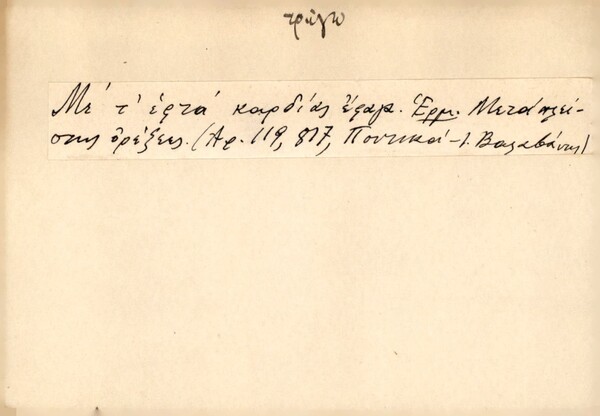 τρώγω
Μέ τ' ἑφτά καρδίας ἔφαγα. Ἑρμ. Μετά πλεί-
στης ὀρέξεως. (Ἀρ. 119, 817, Ποντικαί - Ι. Βαλαβάνης)